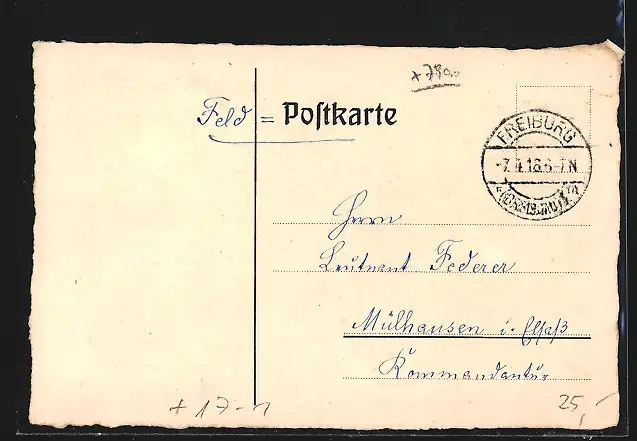 Feld = Postkarte
FREIBURG
-7.4.18.6-7N
Herrn
Leutnant Federer
Mülhausen i. Elsaß
Kommandantur
+ 17-
25,-